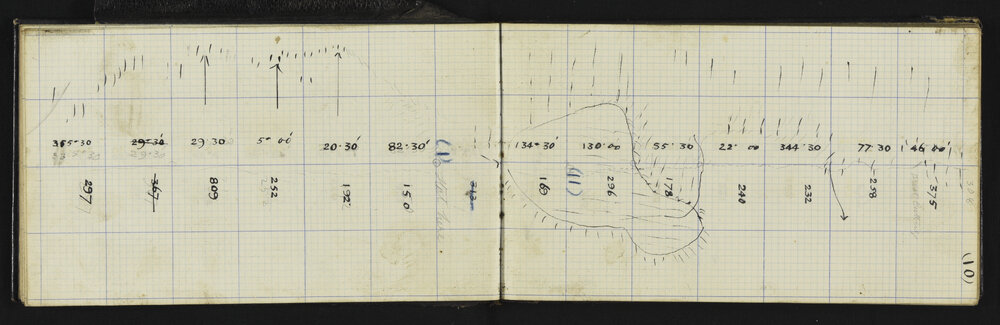 355·30 29·30 29 30 5° 00' 20·30' 82·30' 134·30' 130·00 55·30 22·00 344·30 77 30 46 00'
29·30
297 367 809 252 192 150 313 169 296 178 240 232 258 375
(1)
(11)
(10)